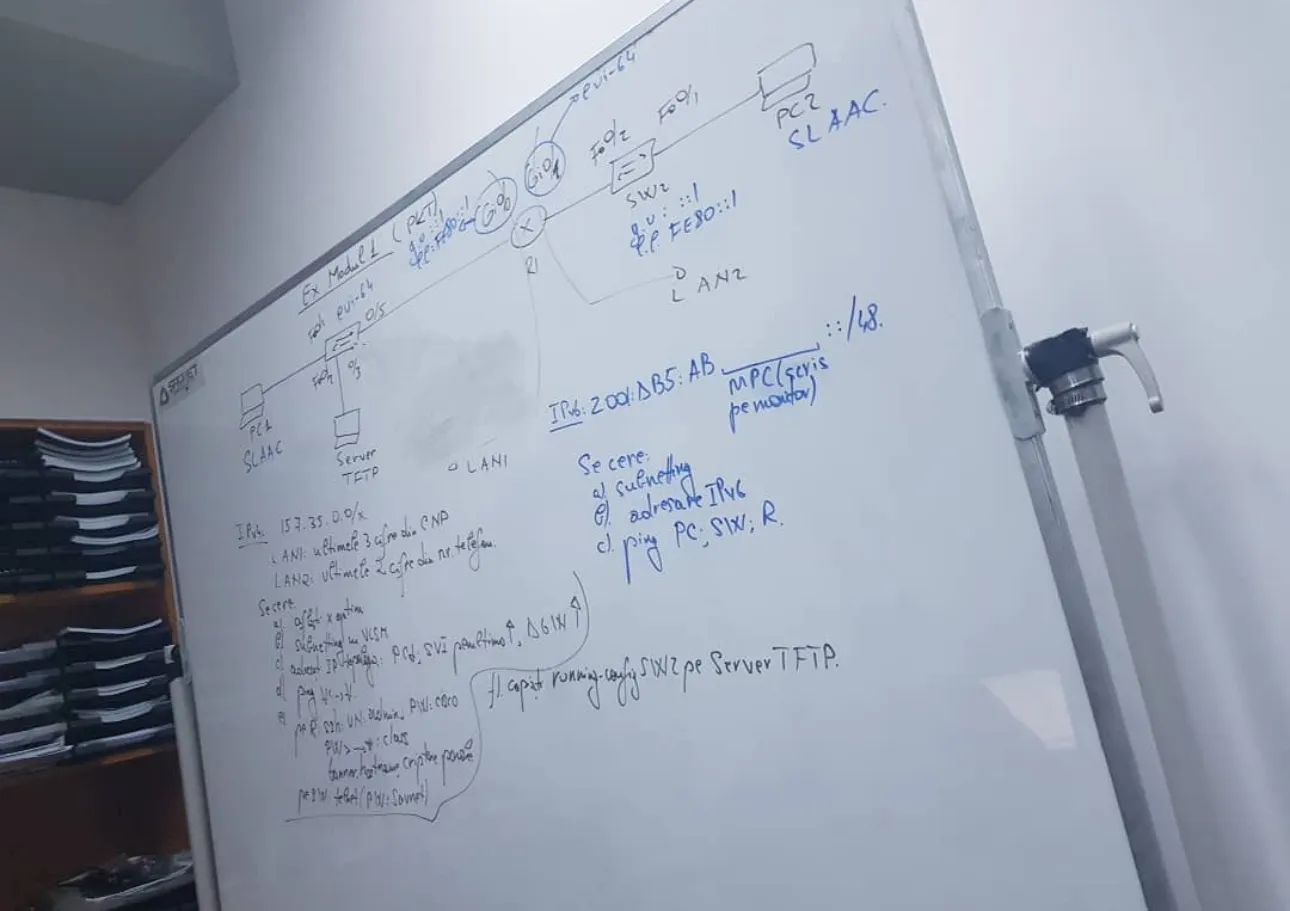 Ex Modul 1 (PKT)
evi-64
Gi0/0
Gi0/1
g.v: ::1
FE80::1
R1
Fa0/2
Fa0/1
SW2
g.v: ::1
FE80::1
PC2
SLAAC.
LAN2
evi-64
0/5
0/3
PC1
SLAAC
Server
TFTP
LAN1
IPv4: 157.35.0.0/x
LAN1: ultimele 3 cifre din CNP
LAN2: ultimele 2 cifre din nr. telefon.
Se cere:
a) x optim
b) subnetting cu VLSM
c) PC, SVI penultima ↑, DGW ↑
d) ping
e) pe R: ssh: UN: admin, PW:
→ #: class
banner, hostname, criptare parole
pe SW: telnet (PW: )
f). copiati running-config SW2 pe Server TFTP.
IPv6: 2001:DB5:AB ::/48.
MPC (scris
pe monitor)
Se cere:
a) subnetting
b). adresare IPv6
c) ping PC; SW; R.